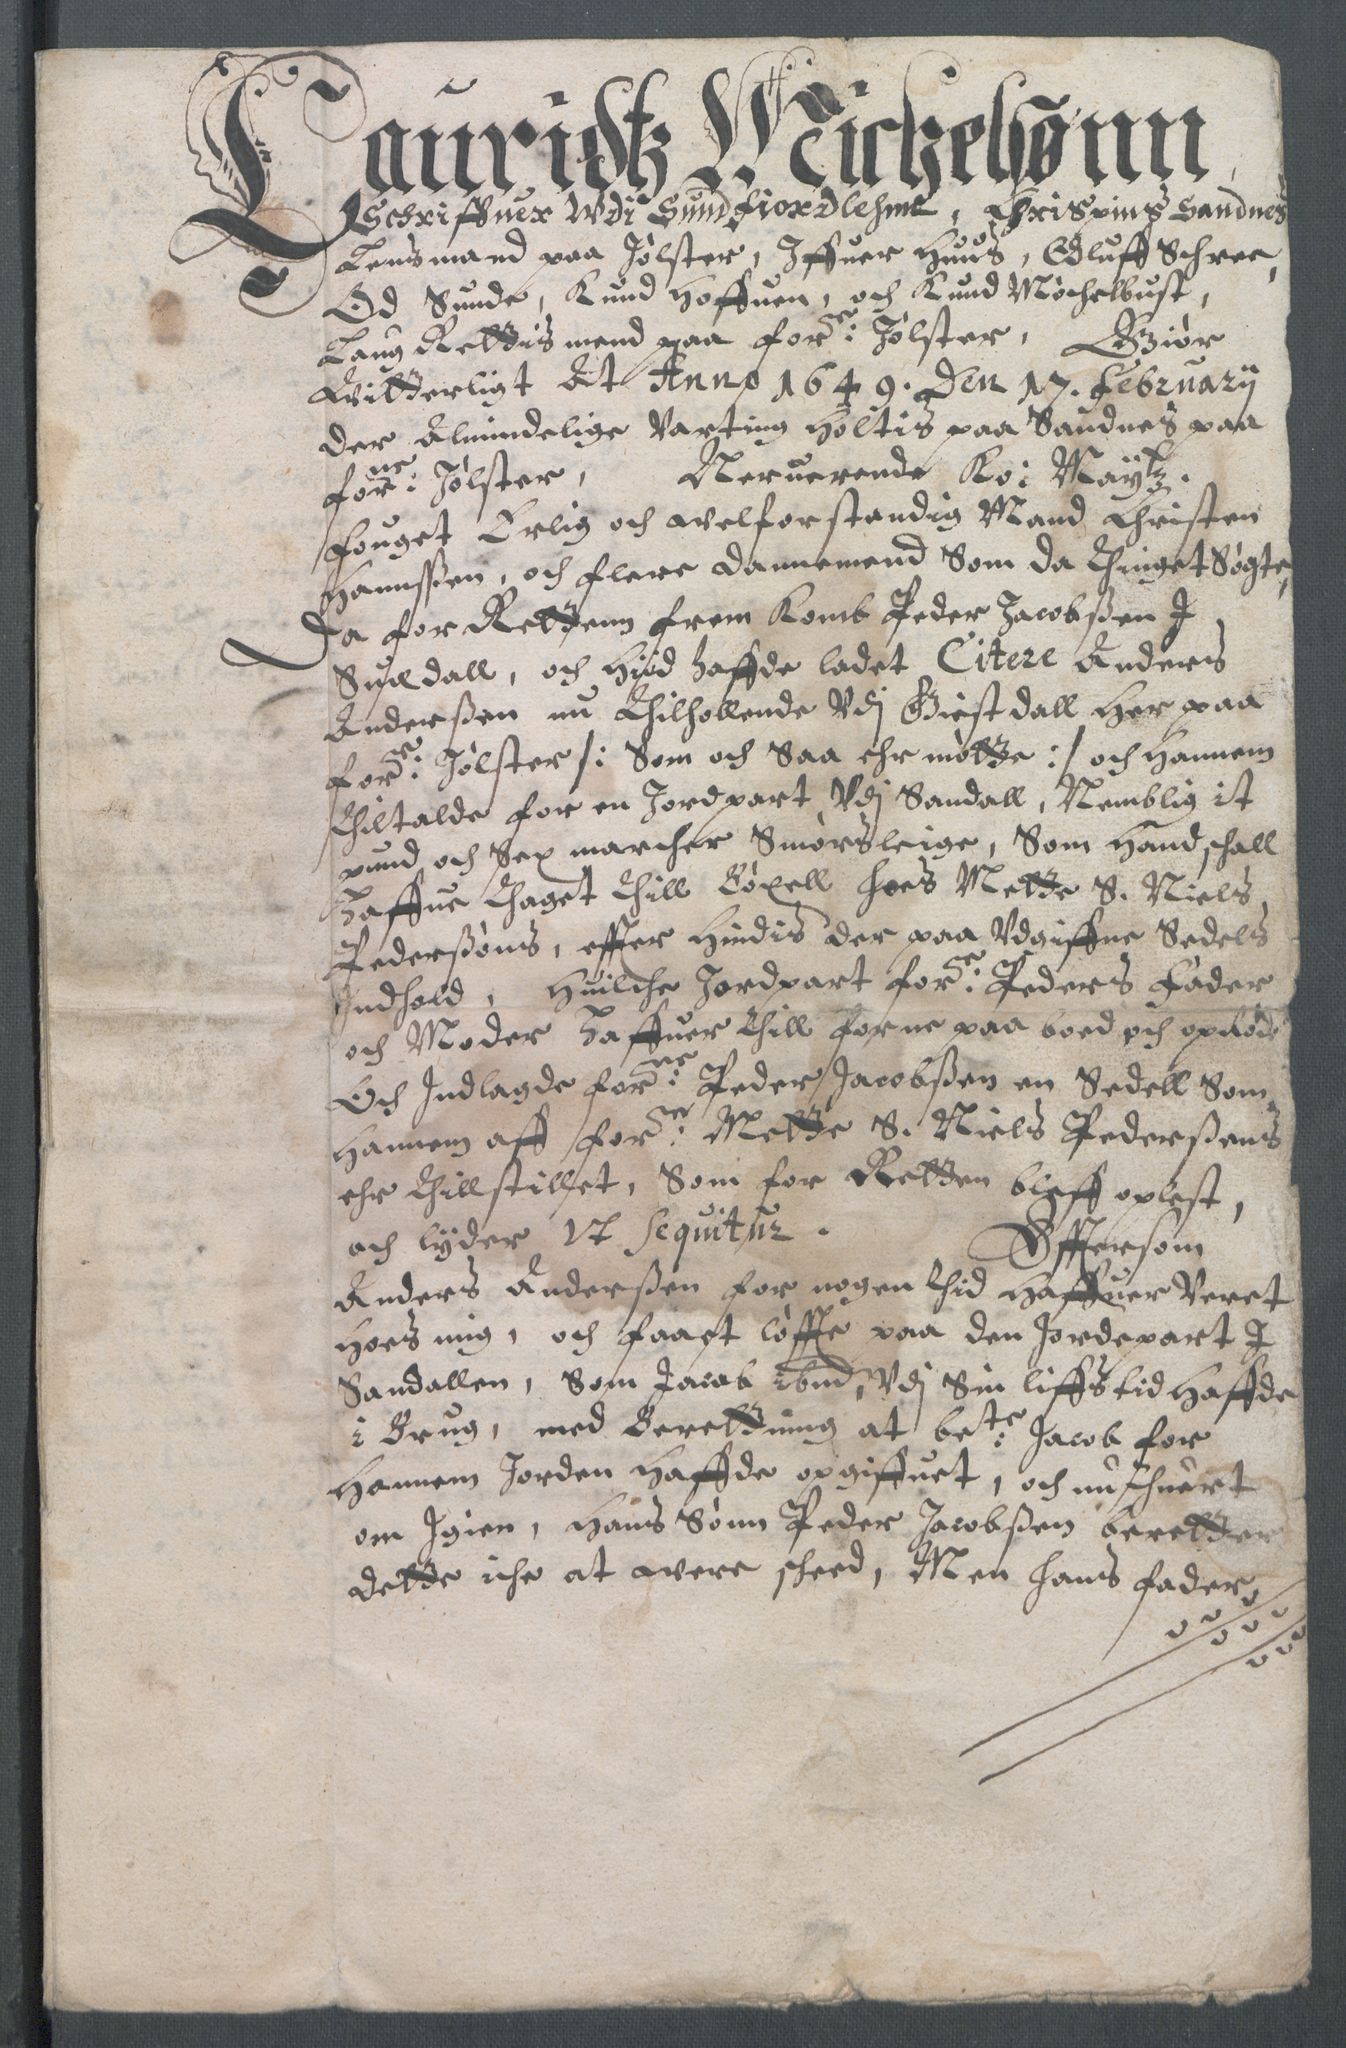 Lauridtz Mickelsønn
Schriffuer Vdi Sundfiordlehnn, Chrispins Sandnes
Lensmand paa Jølster, Iffuer Huus, Odluff Schree,
Od Sunde, Knud Hoffuen, och Knud Møchelbust,
Laug Rettis mend paa forne: Jølster, Giør
Vitterligt At Anno 1649. Den 17. Februarij
der Almindelige Varting holtis paa Sandnes paa
forne: Jølster, Neruerende Ko: Maytz.
fouget Erlig och velforstandig Mand Christen
Hannssen, och flere dannemend Som da Thinget Søgte,
Da for Rettenn frem komb Peder Jacobsen I
Sandall, och hid haffde ladet Citere Anders
Andersen nu Thilhollende Vdj Giestdall her paa
forne: Jølster /: Som och Saa ehr møtte :/ och hannem
Thiltalde for en Jordpart Vdj Sandall, Nemblig it
pund och Sex marcher Smørsleige, Som hand schall
haffue Thaget Thill Bøxell hoes Mette S. Niels
Pedersøns, effter hindis der paa Vdgiffne Sedels
Indhold, Huilche Jordpart forne: Peders Fader
och Moder haffuer Thill forne paa boed och opød
Och Indlagde forne: Peder Jacobsen en Sedell Som
hannem aff forne: Mette S. Niels Pedersens
ehr Thillstillet, Som for Retten bleff oplest,
och lyder Vt sequitur. Effttersom
Anders Andersen for nogen Thid haffuer Veret
hoes mig, och faaet løffte paa den Jordepart I
Sandallen, Som Jacob ibnd, Vdj Sin liffstid haffde
i Brug, med Berettning at bete: Jacob for
hannem Jorden haffde opgiffuet, och nu schuert
om Igien, hans Sønn Peder Jacobsen beretter
dette iche at vere scheed, Men hans fader